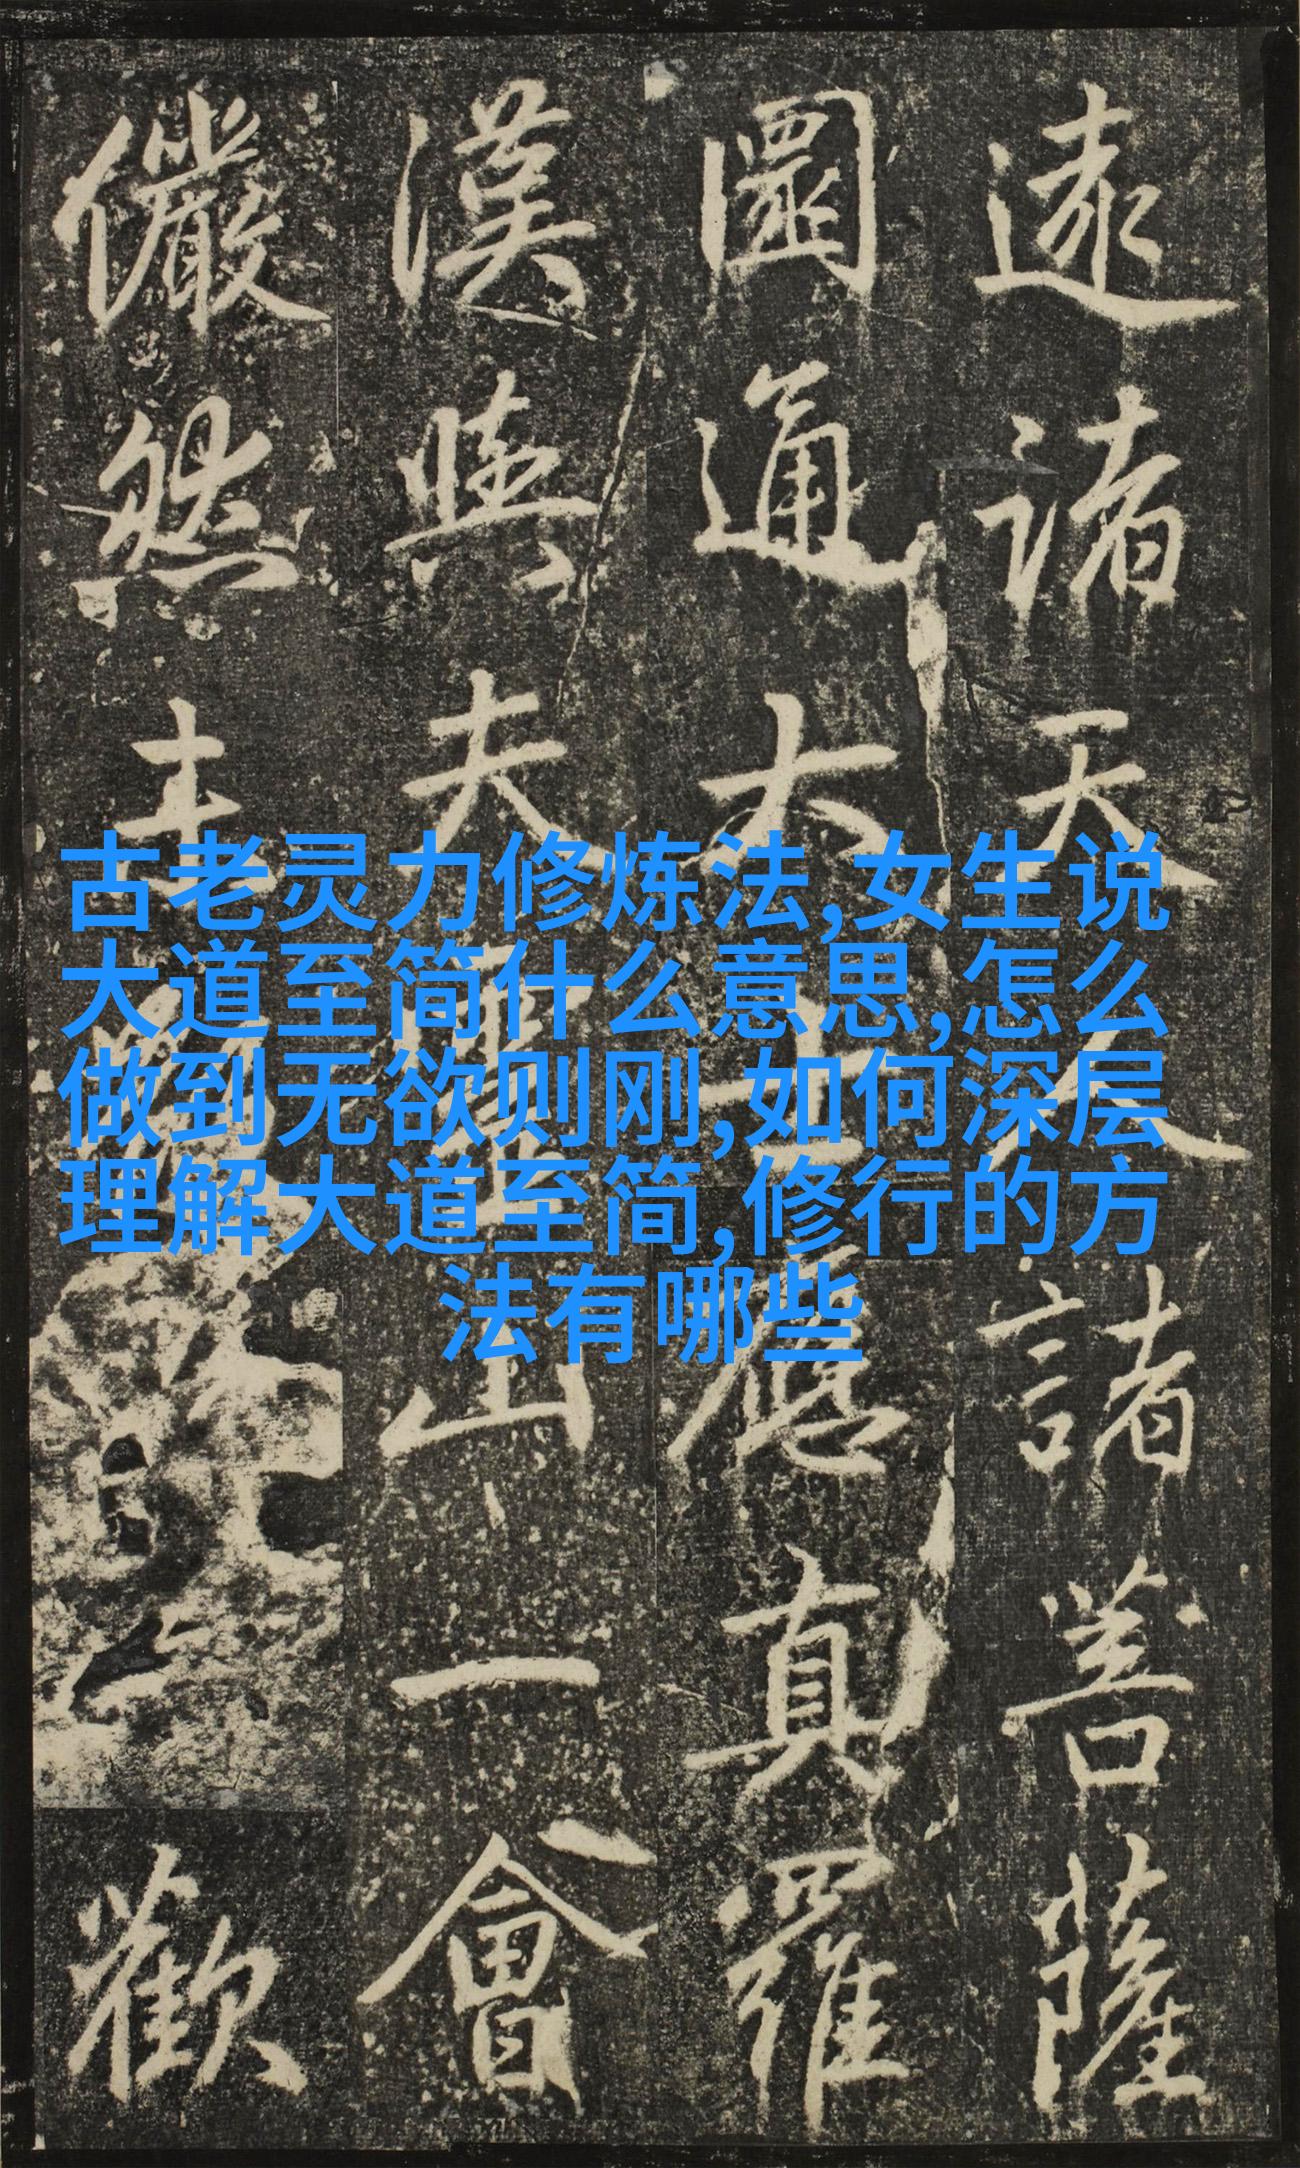 遠諸天人諸菩薩
圜通大士應真羅
漢與夫靈山一會
儼然歡
古老灵力修炼法,女生说
大道至简什么意思,怎么
做到无欲则刚,如何深层
理解大道至简,修行的方
法有哪些